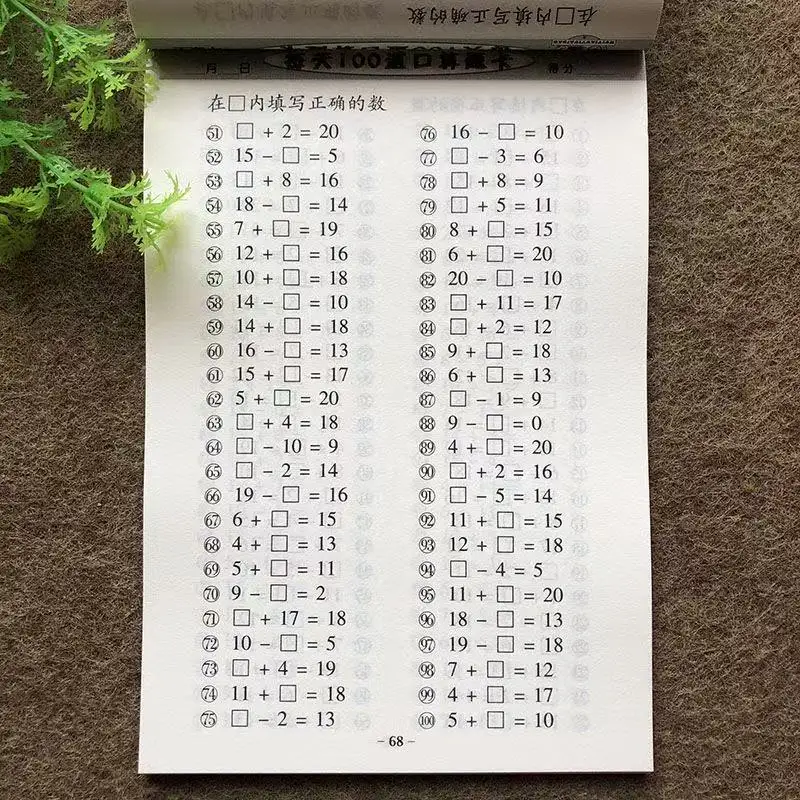 在□内填写正确的数
每天100道口算题卡
月 日 得分
在□内填写正确的数
㊿+1 □ + 2 = 20
52 15 − □ = 5
53 □ + 8 = 16
54 18 − □ = 14
55 7 + □ = 19
56 12 + □ = 16
57 10 + □ = 18
58 14 − □ = 10
59 14 + □ = 18
60 16 − □ = 13
61 15 + □ = 17
62 5 + □ = 20
63 □ + 4 = 18
64 □ − 10 = 9
65 □ − 2 = 14
66 19 − □ = 16
67 6 + □ = 15
68 4 + □ = 13
69 5 + □ = 11
70 9 − □ = 2
71 □ + 17 = 18
72 10 − □ = 5
73 □ + 4 = 19
74 11 + □ = 18
75 □ − 2 = 13
76 16 − □ = 10
77 □ − 3 = 6
78 □ + 8 = 9
79 □ + 5 = 11
80 8 + □ = 15
81 6 + □ = 20
82 20 − □ = 10
83 □ + 11 = 17
84 □ + 2 = 12
85 9 + □ = 18
86 6 + □ = 13
87 □ − 1 = 9
88 9 − □ = 0
89 4 + □ = 20
90 □ + 2 = 16
91 □ − 5 = 14
92 11 + □ = 15
93 12 + □ = 18
94 □ − 4 = 5
95 11 + □ = 20
96 18 − □ = 13
97 19 − □ = 18
98 7 + □ = 12
99 4 + □ = 17
100 5 + □ = 10
- 68 -